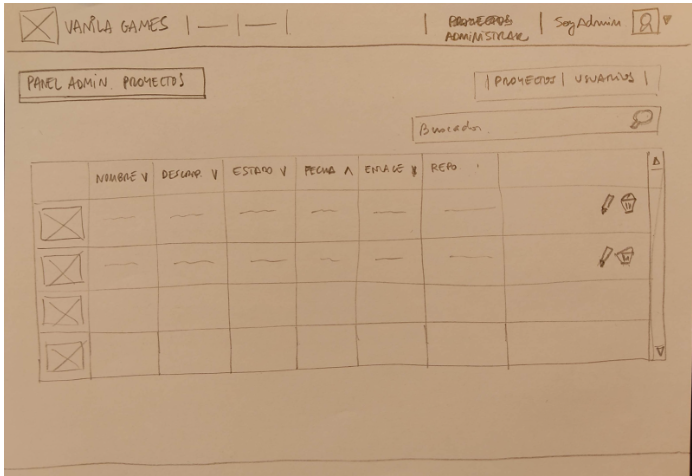 VANILA GAMES | — | — |
PROYECTOS | SoyAdmin
ADMINISTRAR
PANEL ADMIN. PROYECTOS
| PROYECTOS | USUARIOS |
Buscador.
NOMBRE V DESCRIP. V ESTADO V FECHA ʌ ENLACE REPO